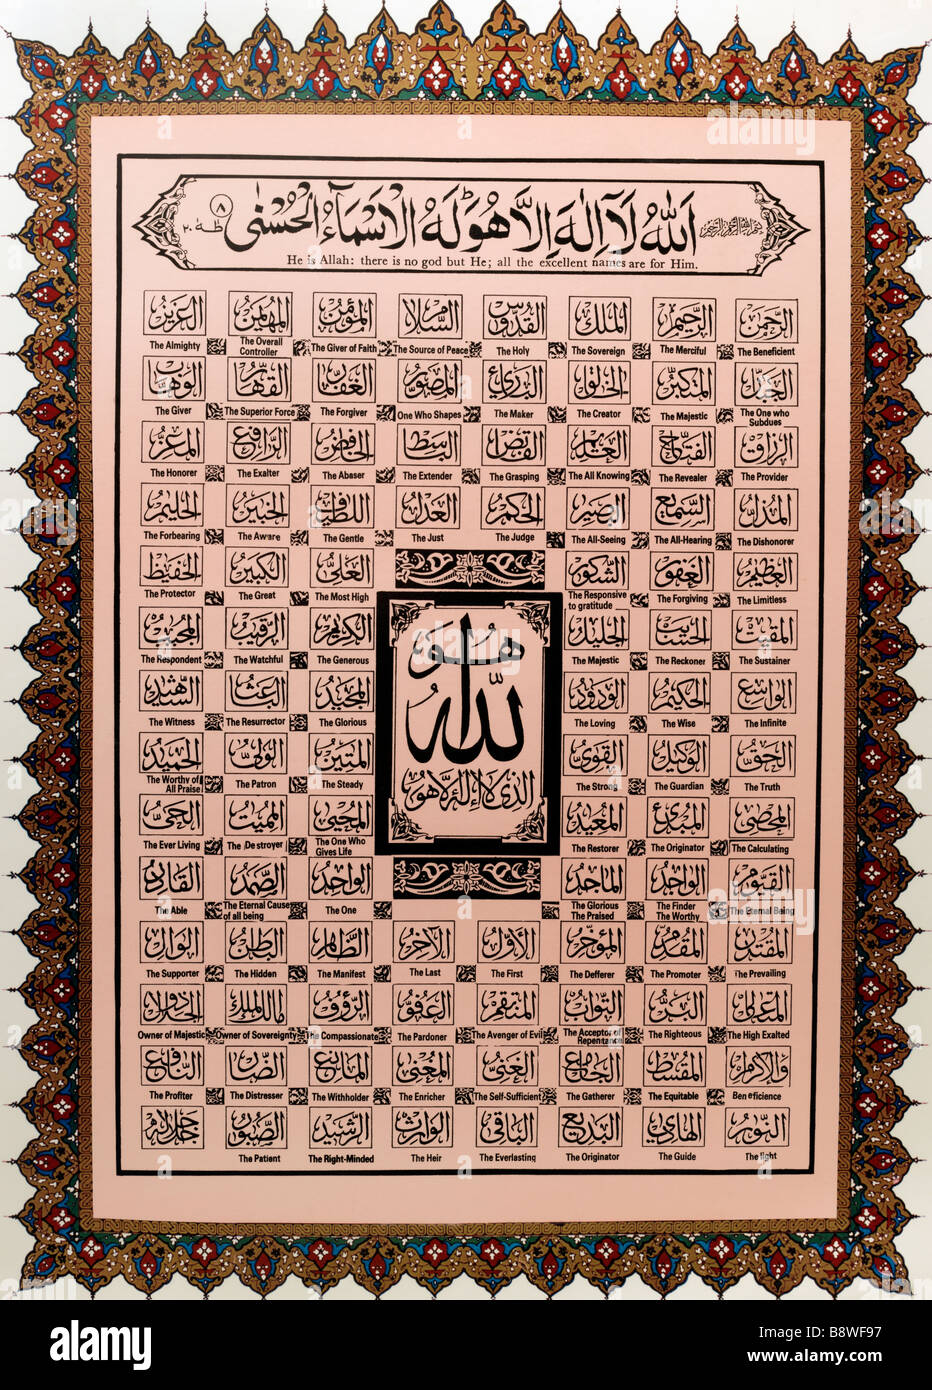 بسم الله الرحمن الرحيم اَللّٰهُ لَآ اِلٰهَ اِلَّا هُوَ لَهُ الْاَسْمَآءُ الْحُسْنٰى ٨ طٰهٰ ٢٠
He is Allah: there is no god but He; all the excellent names are for Him.
الرحمن الرحيم الملك القدوس السلام المؤمن المهيمن العزيز
The Almighty The Overall Controller The Giver of Faith The Source of Peace The Holy The Sovereign The Merciful The Beneficient
الجبار المتكبر الخالق البارئ المصور الغفار القهار الوهاب
The Giver The Superior Force The Forgiver One Who Shapes The Maker The Creator The Majestic The One who Subdues
الرزاق الفتاح العليم القابض الباسط الخافض الرافع المعز
The Honorer The Exalter The Abaser The Extender The Grasping The All Knowing The Revealer The Provider
المذل السميع البصير الحكم العدل اللطيف الخبير الحليم
The Forbearing The Aware The Gentle The Just The Judge The All-Seeing The All-Hearing The Dishonorer
العظيم الغفور الشكور العلي الكبير الحفيظ
The Protector The Great The Most High The Responsive to gratitude The Forgiving The Limitless
المقيت الحسيب الجليل الكريم الرقيب المجيب
The Respondent The Watchful The Generous The Majestic The Reckoner The Sustainer
الواسع الحكيم الودود المجيد الباعث الشهيد
The Witness The Resurrector The Glorious The Loving The Wise The Infinite
هو
الله
الذي لا اله الا هو
الحق الوكيل القوي المتين الولي الحميد
The Worthy of All Praise The Patron The Steady The Strong The Guardian The Truth
المحصي المبدئ المعيد المحيي المميت الحي
The Ever Living The Destroyer The One Who Gives Life The Restorer The Originator The Calculating
القيوم الواجد الماجد الواحد الصمد القادر
The Able The Eternal Cause of all being The One The Glorious The Praised The Finder The Worthy The Eternal Being
المقتدر المقدم المؤخر الاول الآخر الظاهر الباطن الوالي
The Supporter The Hidden The Manifest The Last The First The Defferer The Promoter The Prevailing
المتعالي البر التواب المنتقم العفو الرؤف مالك الملك ذو الجلال
Owner of Majestic Owner of Sovereignty The Compassionate The Pardoner The Avenger of Evil The Acceptor of Repentance The Righteous The High Exalted
والاكرام المقسط الجامع الغني المغني المانع الضار النافع
The Profiter The Distresser The Withholder The Enricher The Self-Sufficient The Gatherer The Equitable Beneficience
النور الهادي البديع الباقي الوارث الرشيد الصبور جل جلاله
The Patient The Right-Minded The Heir The Everlasting The Originator The Guide The light
alamy
Image ID: B8WF97
www.alamy.com